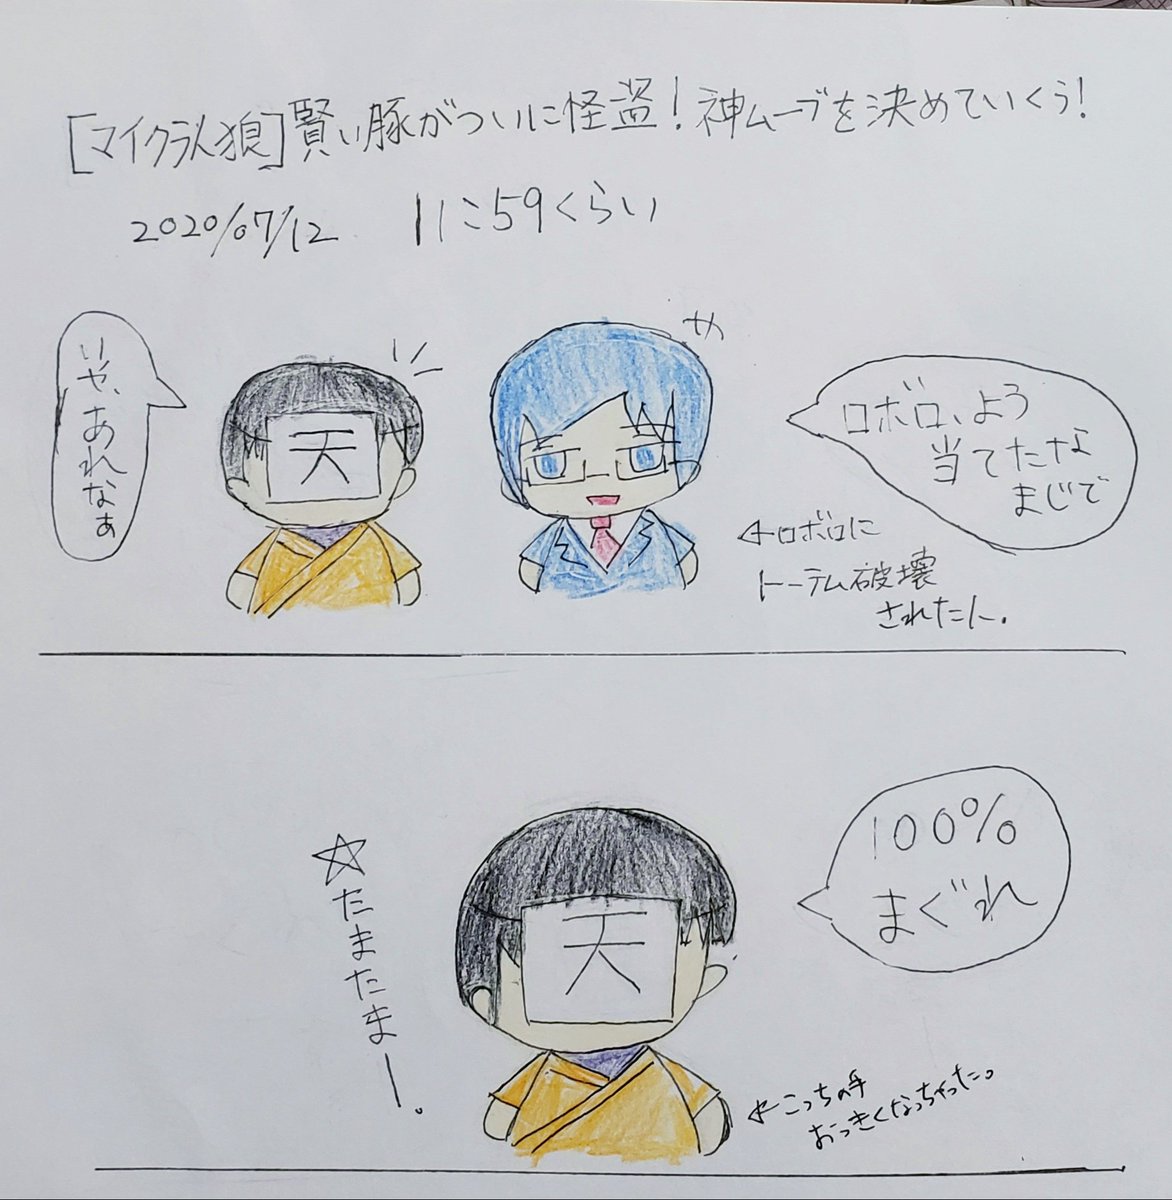 [マイクラ人狼]賢い豚がついに怪盗!神ムーブを決めていくぅ!
2020/07/12　11:59くらい
いや、あれなぁ
天
ロボロ、よう
当てたな
まじで
←ロボロに
トーテム破壊
された人。
100%
まぐれ
☆たまたまー。
天
←こっちの手
おっきくなっちゃった。